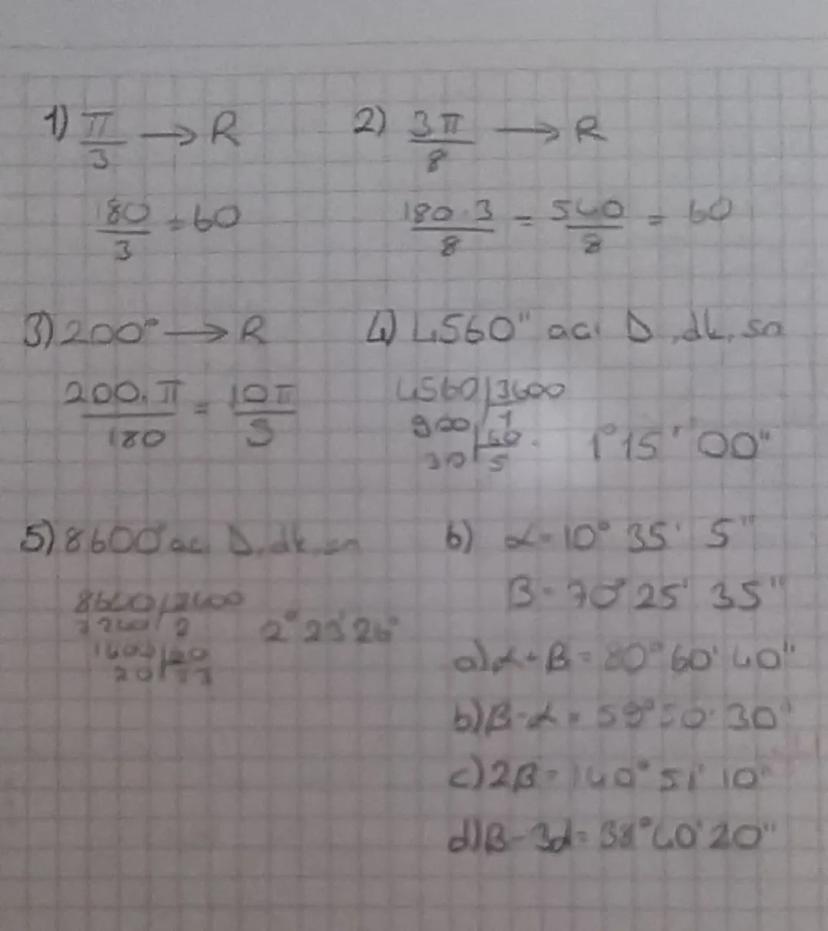 1) π/3 → R
180/3 = 60
2) 3π/8 → R
180.3/8 = 540/8 = 60
3) 200° → R
200.π/180 = 10π/9
4) 4560" acı D, dk, sn
4560 | 3600
1
900 | 60
5
1° 15' 00"
5) 8600" acı D, dk, sn
8600 | 3600
7200 | 2
20
2° 23' 20"
6) α = 10° 35' 5"
B = 70° 25' 35"
a) α + B = 80° 60' 40"
b) B - α = 59° 50' 30"
c) 2B = 140° 51' 10"
d) B - 3α = 38° 40' 20"